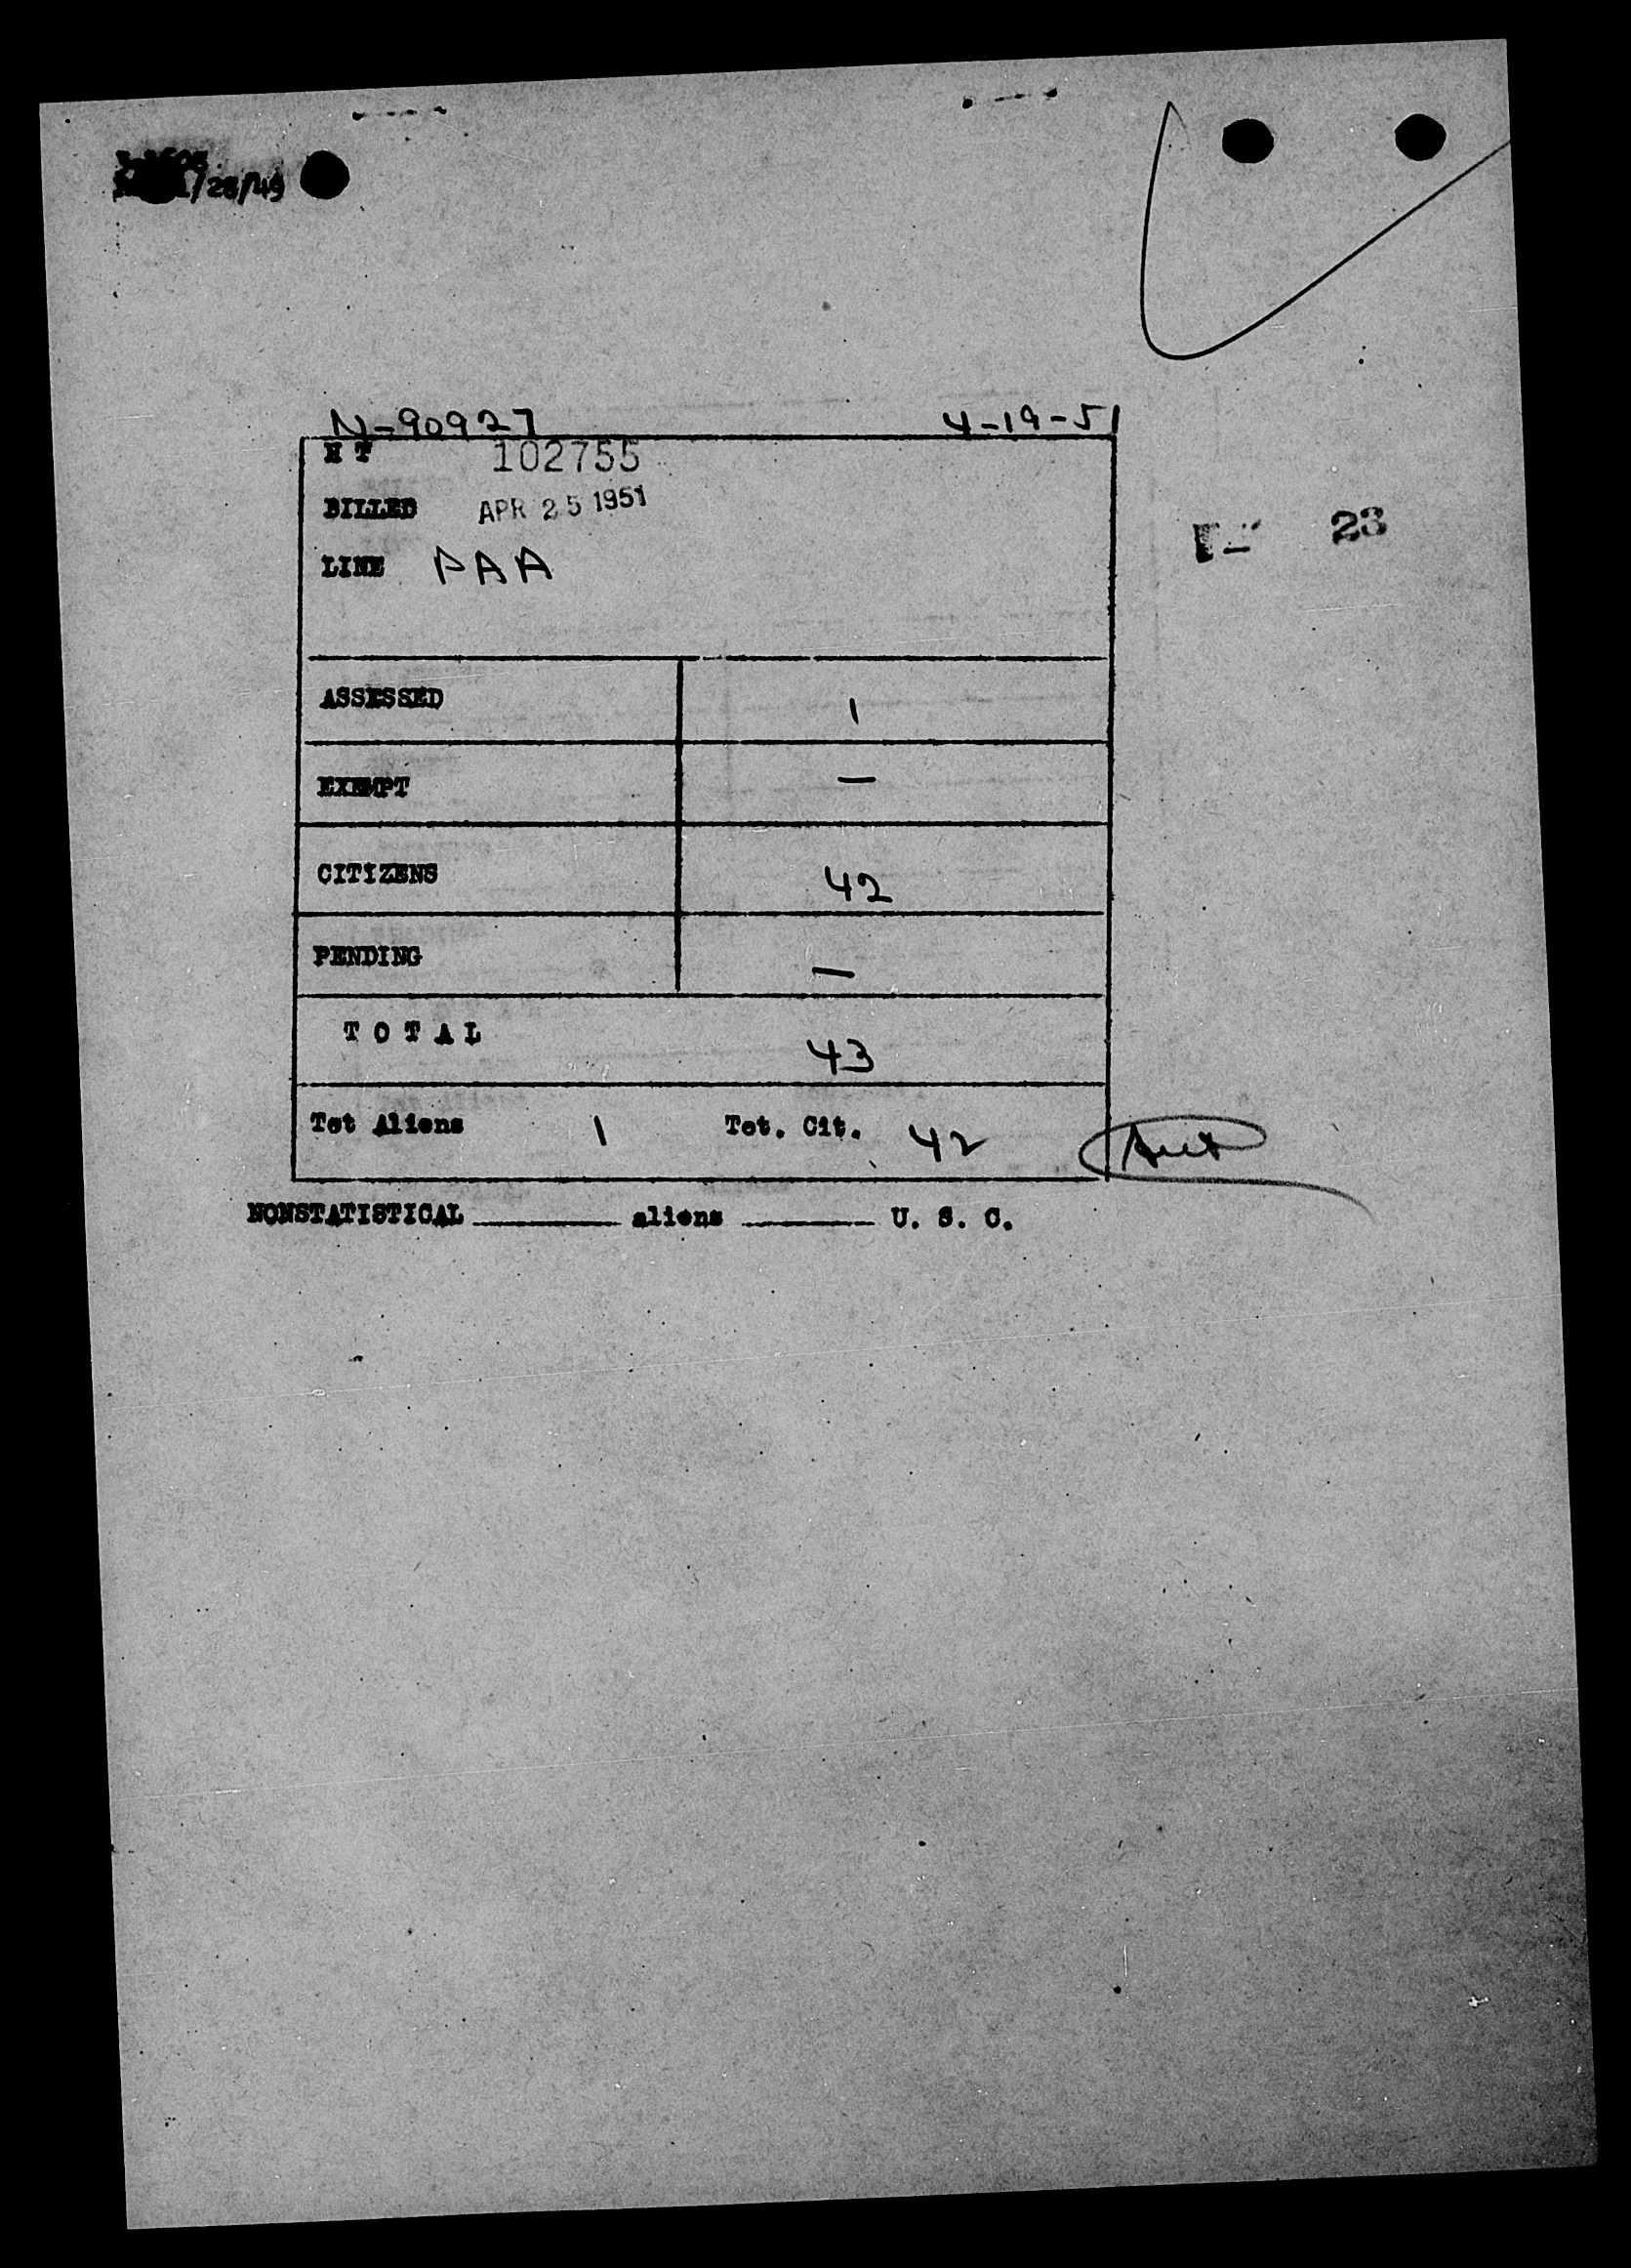 /28/49
N-90927 4-19-51
H T 102755
BILLED APR 25 1951
23
LINE PAA
ASSESSED 1
EXEMPT —
CITIZENS 42
PENDING —
T O T A L 43
Tot Aliens 1 Tot. Cit. 42
NONSTATISTICAL ________ aliens ________ U. S. C.